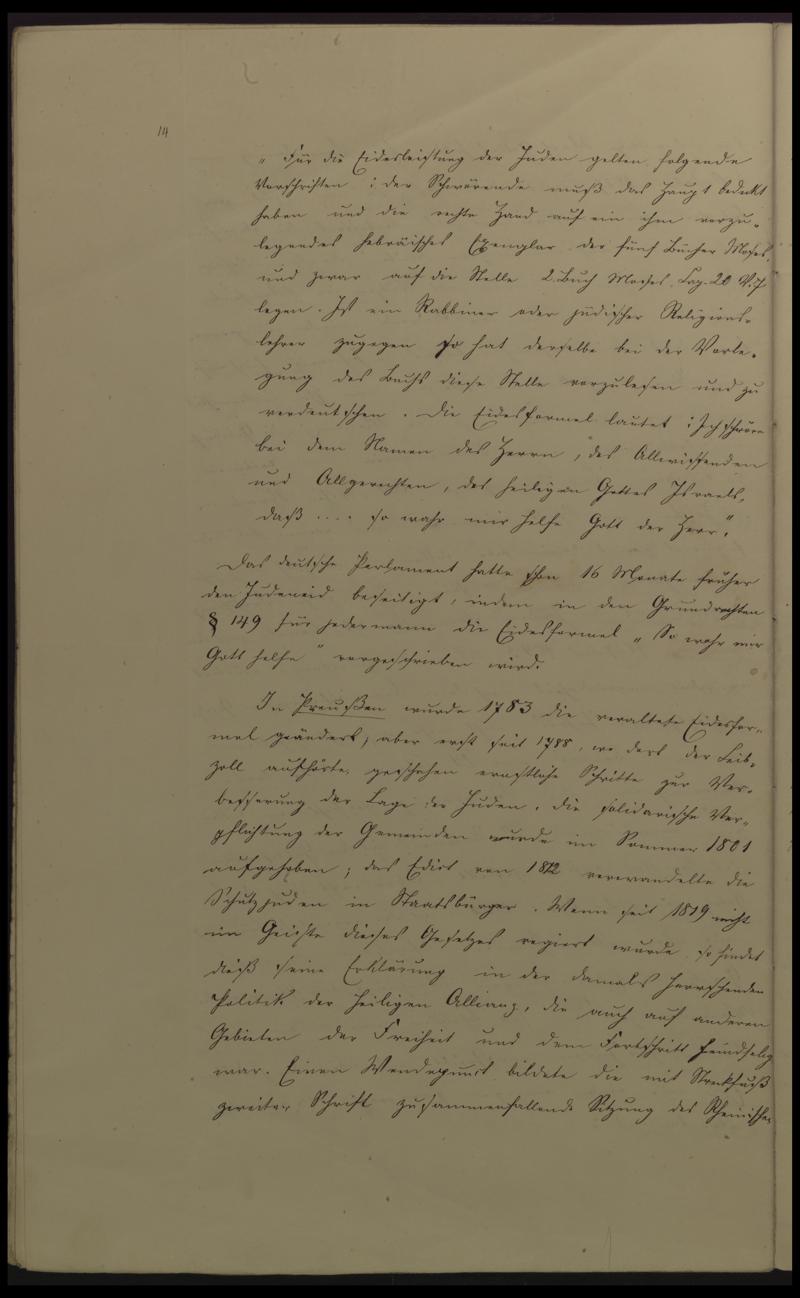 14
„Für die Eidesleistung der Juden gelten folgende
Vorschriften : der Schwörende muß das Haupt bedeckt
haben und die rechte Hand auf ein ihm vorzu-
legendes hebräisches Exemplar der fünf Bücher Moses,
und zwar auf die Stelle 2. Buch Moses Cap. 20 V. 7
legen. Ist ein Rabbiner oder jüdischer Religions-
lehrer zugegen so hat derselbe bei der Vorle-
gung des Buchs diese Stelle vorzulesen und zu
verdeutschen. Die Eidesformel lautet : Ich schwöre
bei dem Namen des Herrn, des Allwissenden
und Allgerechten, des heiligen Gottes Israels,
daß .... so wahr mir helfe Gott der Herr".
Das deutsche Parlament hatte schon 16 Monate früher
den Judeneid beseitigt, indem in den Grundrechten
§ 149 für jedermann die Eidesformel „So wahr mir
Gott helfe" vorgeschrieben wird.
In Preußen wurde 1783 die veraltete Eidesfor-
mel geändert, aber erst seit 1788, wo dort der Leib-
zoll aufhörte, geschahen ernstliche Schritte zur Ver-
besserung der Lage der Juden. Die solidarische Ver-
pflichtung der Gemeinden wurde im Sommer 1801
aufgehoben; das Edict von 1812 verwandelte die
Schutzjuden in Staatsbürger. Wenn seit 1819 nicht
im Geiste dieses Gesetzes regiert wurde so findet
dieß seine Erklärung in der damals herrschenden
Politik der heiligen Allianz, die auch auf anderen
Gebieten der Freiheit und dem Fortschritt feindselig
war. Einen Wendepunct bildete die mit Streckfuß
zweiter Schrift zusammenfallende Sitzung des Rheinischen